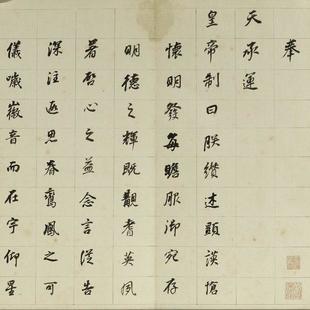 奉
天承運
皇帝制曰朕纘述顯謨愴
懷明發每瞻服御宛存
明德之輝既觀耆英夙
著啓心之益念言從告
深注遐思眷鸞鳳之可
儀噦徽音而在宇仰星